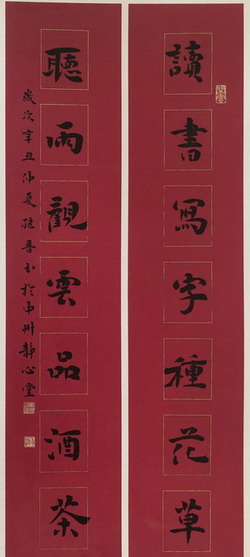 讀書寫字種花草
聽雨觀雲品酒茶
歲次辛丑仲夏 於中州靜心堂